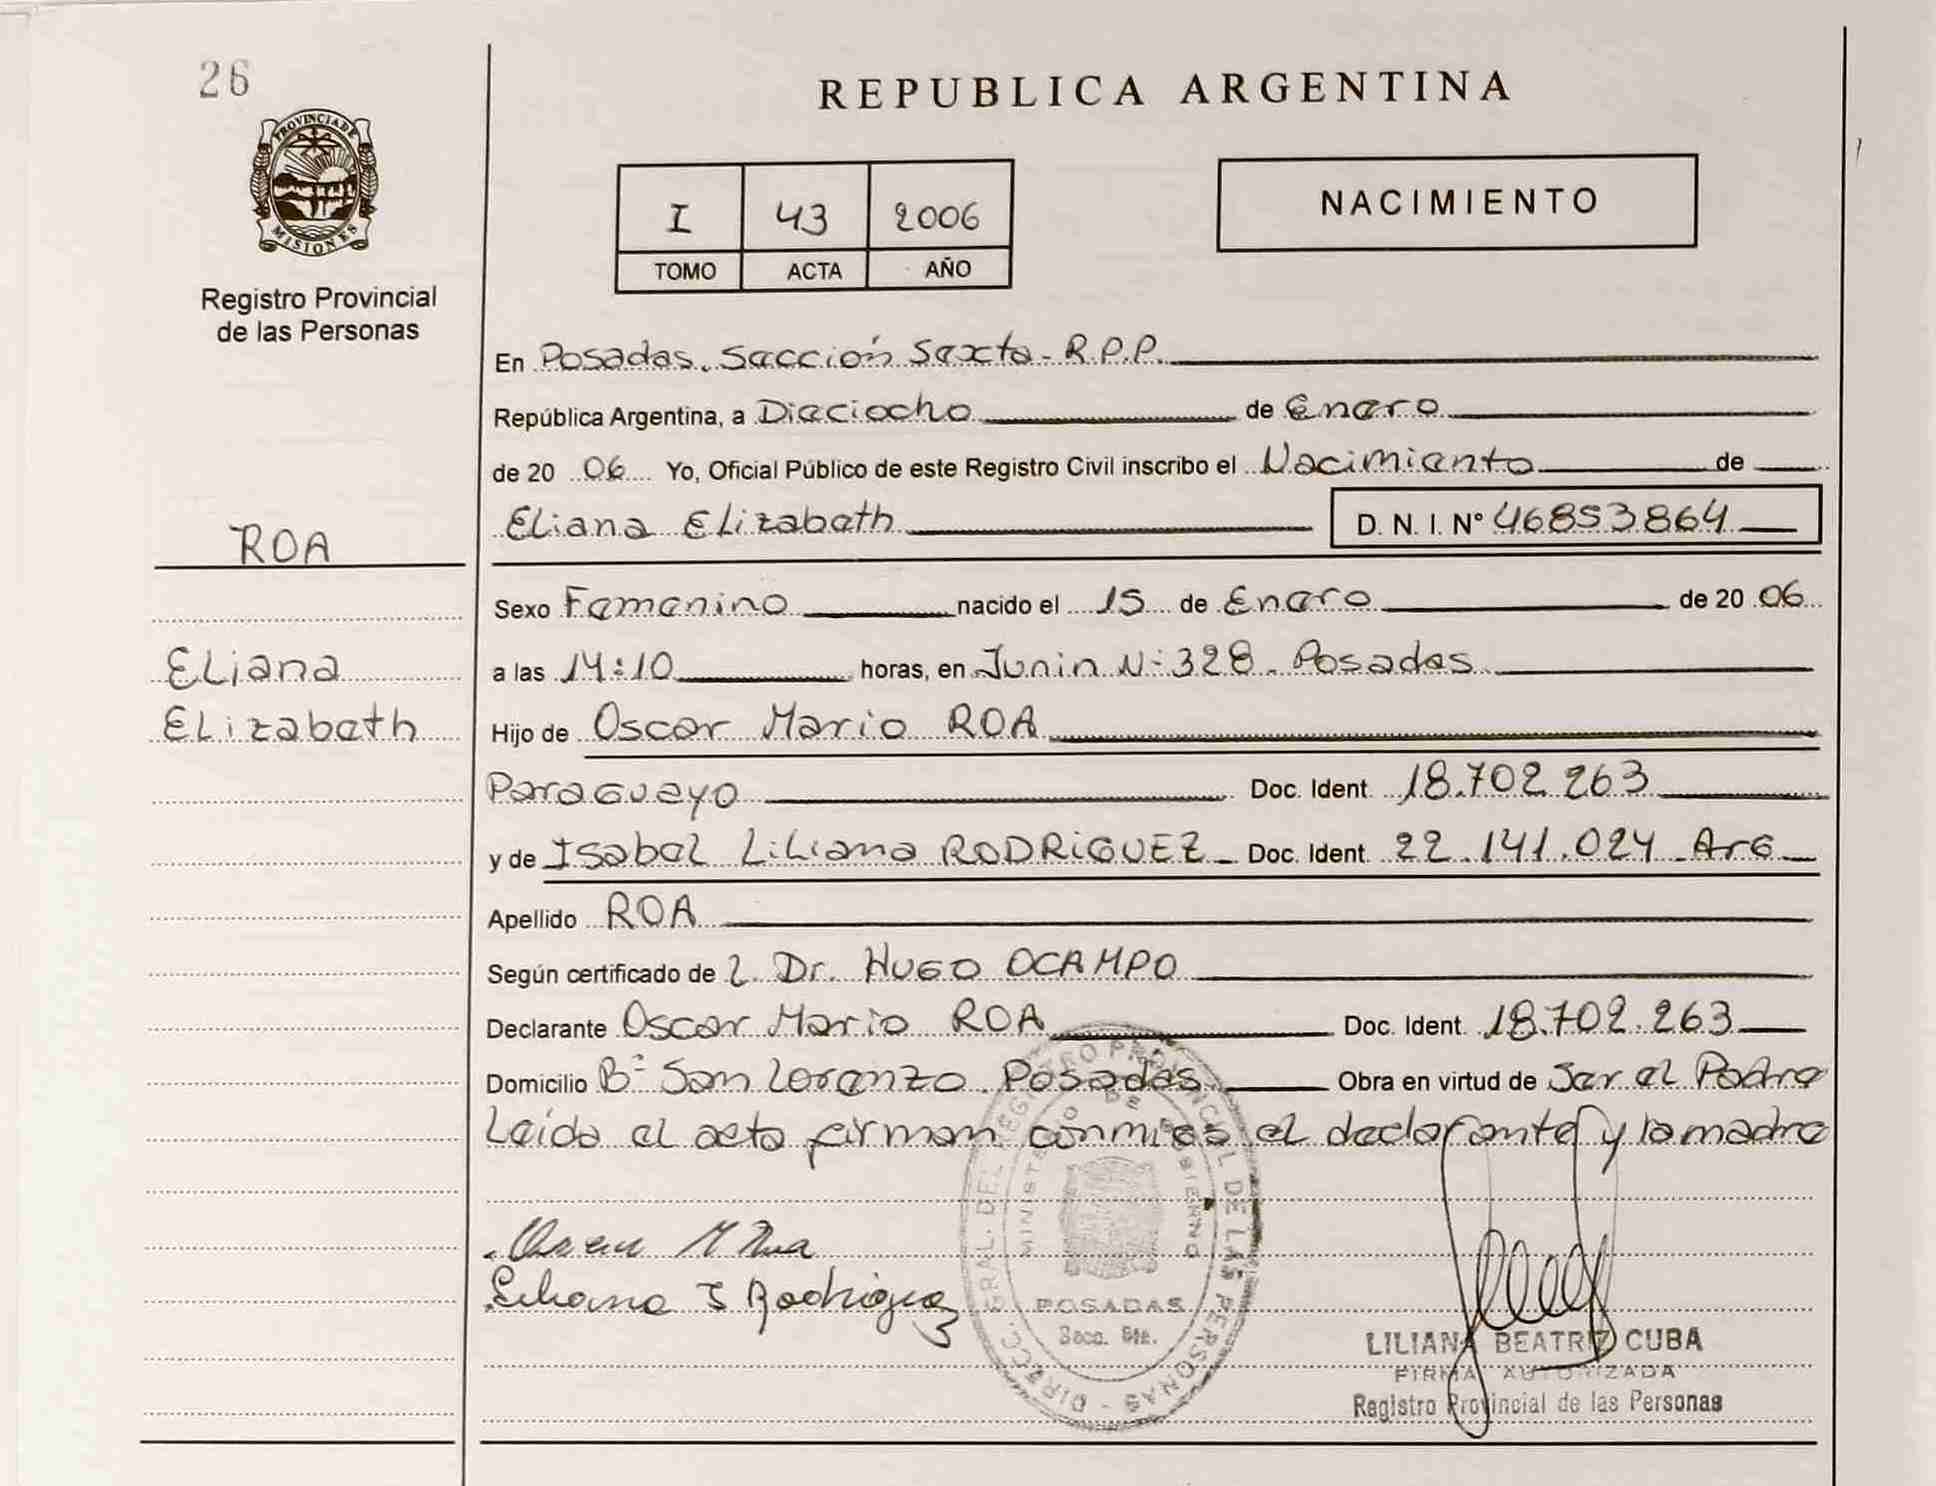 26
PROVINCIA DE
MISIONES
Registro Provincial
de las Personas
REPUBLICA ARGENTINA
I 43 2006
TOMO ACTA AÑO
NACIMIENTO
En Posadas. Sección Sexta - R.P.P.
República Argentina, a Dieciocho de Enero
de 20 06 Yo, Oficial Público de este Registro Civil inscribo el Nacimiento de
Eliana Elizabeth D. N. I. N° 46853864
ROA
Sexo Femenino nacido el 15 de Enero de 20 06
Eliana
a las 14:10 horas, en Junin N° 328 - Posadas
Elizabeth
Hijo de Oscar Mario ROA
Paraguayo Doc. Ident. 18.702.263
y de Isabel Liliana RODRIGUEZ Doc. Ident. 22.141.024 Arg
Apellido ROA
Según certificado de Dr. HUGO OCAMPO
Declarante Oscar Mario ROA Doc. Ident. 18.702.263
Domicilio B° San Lorenzo. Posadas Obra en virtud de Ser el Padre
Leída el acta firman conmigo el declarante y la madre
DIRECC. GRAL. DEL REGISTRO PROVINCIAL DE LAS PERSONAS
MINISTERIO DE GOBIERNO
POSADAS
Secc. 6ta.
Liliana I Rodriguez
LILIANA BEATRIZ CUBA
FIRMA AUTORIZADA
Registro Provincial de las Personas